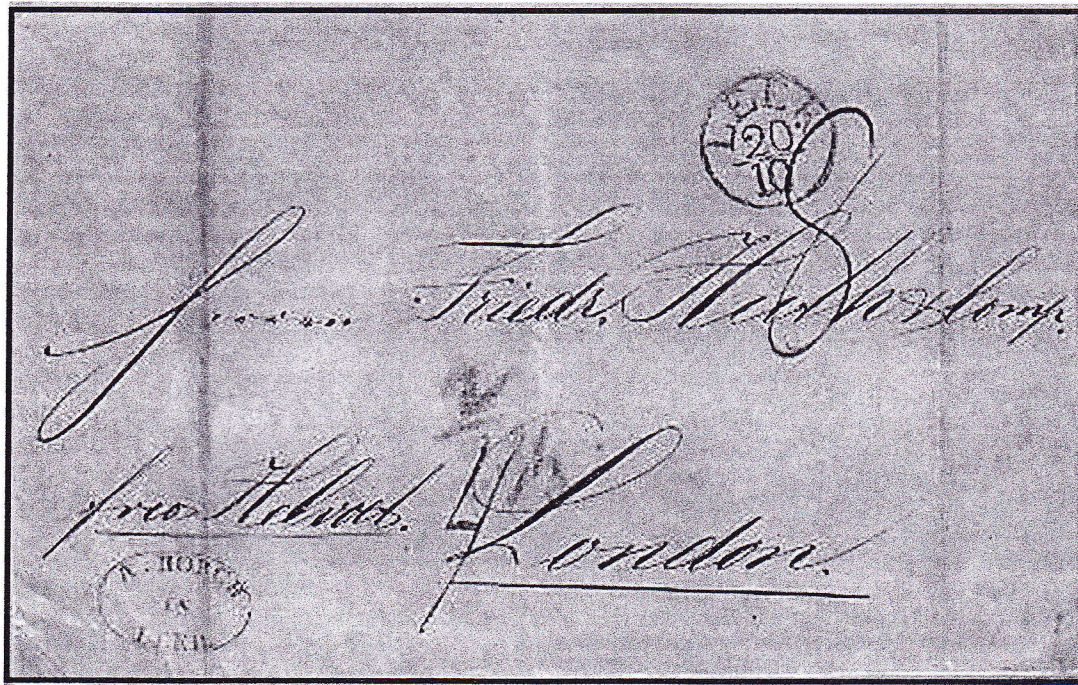 LEER
20
10
8
Herren Friedr. Huth & Comp.
frco Helvoet.
London.
IN
LEER